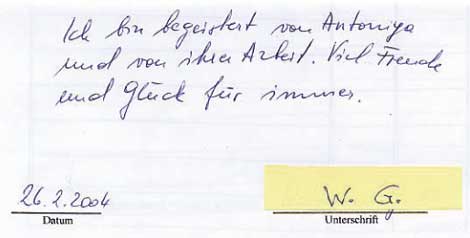 Ich bin begeistert von Antoniya
und von ihrer Arbeit. Viel Freude
und Glück für immer.
26.2.2004 W. G.
Datum Unterschrift